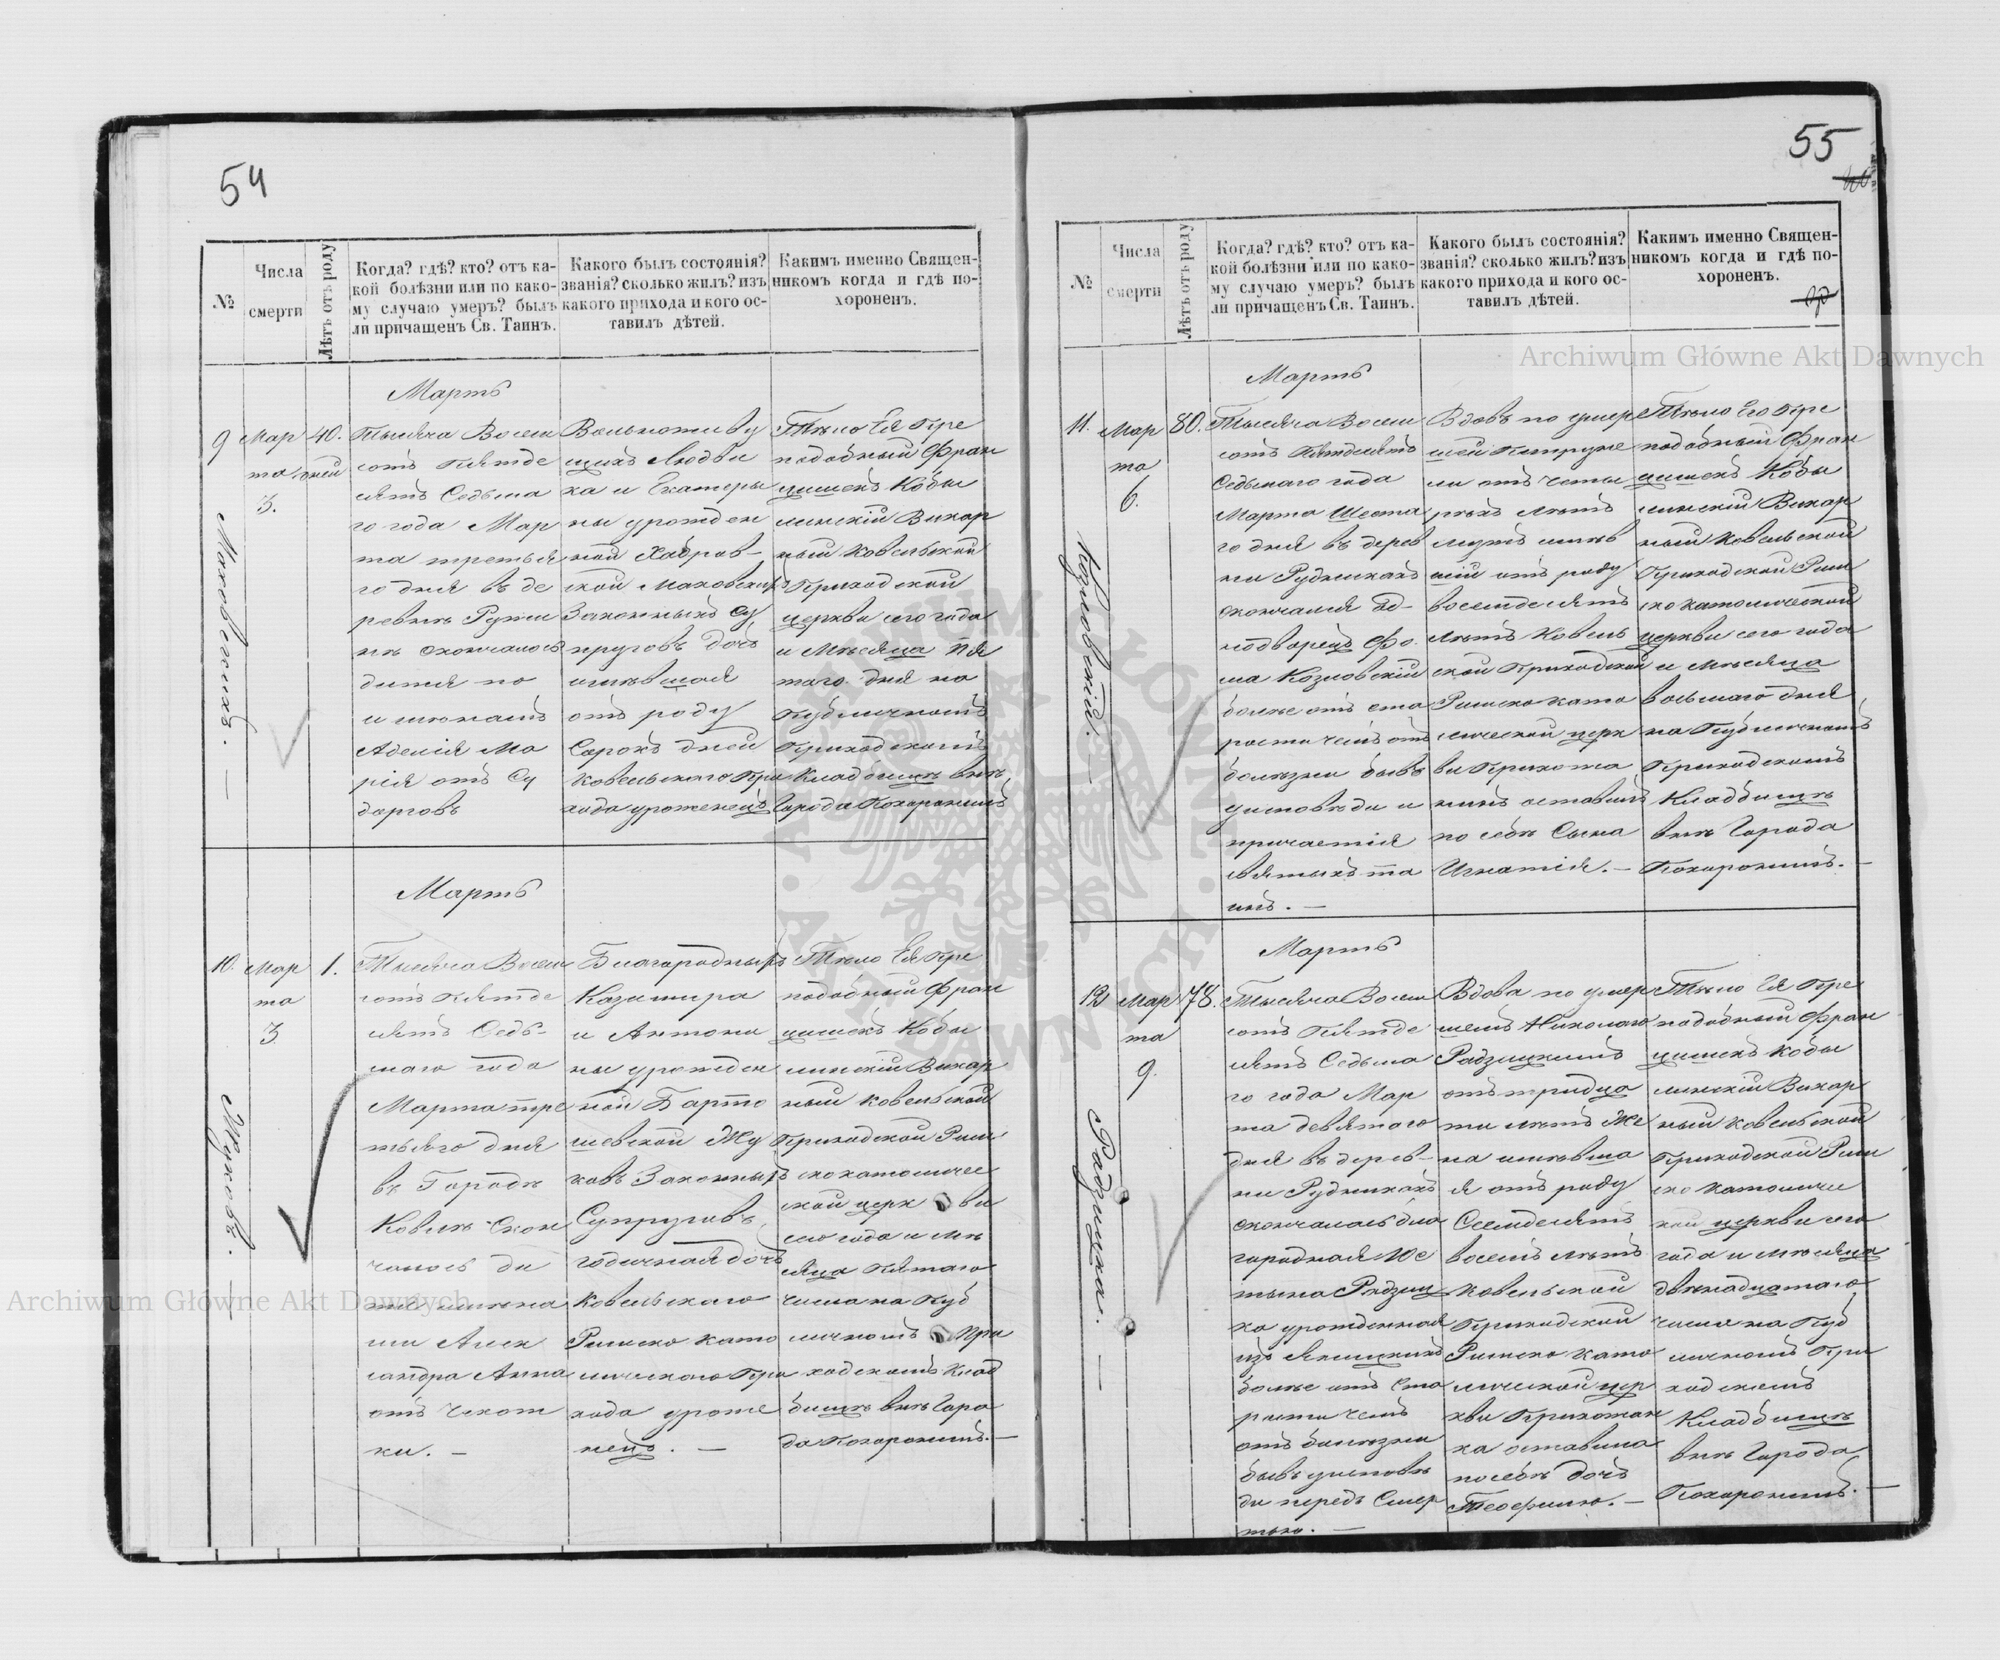 54
№
Числа
смерти
Лѣтъ отъ роду
Когда? гдѣ? кто? отъ ка-
кой болѣзни или по како-
му случаю умеръ? былъ
ли причащенъ Св. Таинъ.
Какого былъ состоянія?
званія? сколько жилъ? изъ
какого прихода и кого ос-
тавилъ дѣтей.
Какимъ именно Священ-
никомъ когда и гдѣ по-
хороненъ.
9
Маковскихъ. —
Мар
та
3.
40.
дней
Мартъ
Тысяча Восем
сотъ Пятьде
сятъ Седьма
го года Мар
та третья
го дня въ де
ревнѣ
скончалось
дитя по
именамъ
Аделія Ма
рія отъ Су
дорговъ
Вольноживу
щихъ Людви
ка и Екатеры
ны урожден
ной
ской Маковскихъ
Законныхъ Су
пруговъ Дочь
имѣвшая
отъ роду
Сорокъ дней
Ковельскаго При
хода уроженецъ
Тѣло Ея Пре
подобный Фран
цишекъ Кобы
линскій Викар
ный Ковельской
Приходской
церкви сего года
и Мѣсяца Пя
таго дня на
Публичномъ
Приходскомъ
Кладбищѣ внѣ
Города Похоронилъ
10.
Жуковъ. —
Мар
та
3
1.
Мартъ
Тысяча Восем
сотъ Пятьде
сятъ Седь-
маго года
Марта тре
тьяго дня
въ Городѣ
Ковелѣ Скон
чалось ди
тя имена
ми Алек
сандра Анна
отъ Чахот
ки. —
Благородныхъ
Казимира
и Антони
ны урожден
ной Барто
шевской Жу
ковъ Законныхъ
Супруговъ,
годичная дочь
Ковельскаго
Римско Като
лическаго При
хода уроже
нецъ. —
Тѣло Ея Пре
подобный Фран
цишекъ Кобы
линскій Викар
ный Ковельской
Приходской Рим
скокатоличес
кой церк ви
сего года и мѣ
сяца Пятаго
числа на Пуб
личномъ При
ходскомъ Клад
бищѣ внѣ Горо
да Похоронилъ. —
55
№
Числа
смерти
Лѣтъ отъ роду
Когда? гдѣ? кто? отъ ка-
кой болѣзни или по како-
му случаю умеръ? былъ
ли причащенъ Св. Таинъ.
Какого былъ состоянія?
званія? сколько жилъ? изъ
какого прихода и кого ос-
тавилъ дѣтей.
Какимъ именно Священ-
никомъ когда и гдѣ по-
хороненъ.
11.
Козловскій. —
Мар
та
6.
80.
Мартъ
Тысяча Восем
сотъ Пятдесятъ
Седьмаго года
Марта Шеста
го дня въ дерев
ни Рудникахъ
скончался Од-
нодворецъ Фо
ма Козловскій
болѣе отъ ста
рости чемъ отъ
болѣзни бывъ
исповѣди и
причастія
святыхъ та
инъ. —
Вдовъ по умер
шей Петруне
ли отъ четы
рехъ лѣтъ
мужъ имѣв
шій отъ роду
восемдесятъ
лѣтъ Ковель
ской Приходской
Римско като
лической церк
ви Прихожа
нинъ оставилъ
по себѣ Сына
Игнатія. —
Тѣло Его Пре
подобный Фран
цишекъ Кобы
линскій Викар
ный Ковельской
Приходской Рим
ско католической
церкви сего года
и мѣсяца
восьмаго дня
на Публичномъ
Приходскомъ
Кладбищѣ
внѣ Города
Похоронилъ. —
12
Радзицка. —
Мар
та
9.
78.
Мартъ
Тысяча Восем
сотъ Пятде
сятъ Седьма
го года Мар
та девятого
дня въ дерев-
ни Рудникахъ
скончалась бла
городная Юс
тына Радзиц
ка урожденная
изъ
болѣе отъ Ста
рости чемъ
отъ болѣзни
бывъ исповѣ
ди передъ Смер
тью. —
Вдова по умер
шемъ Николаю
Радзицкимъ
отъ тридца
ти лѣтъ Же
на имѣвша
я отъ роду
Семдесятъ
восемъ лѣтъ
Ковельской
Приходской
Римско Като
лической цер
кви Прихожан
ка оставила
по себѣ дочь
Теофилю. —
Тѣло Ея Пре
подобный Фран
цишекъ Кобы
линскій Викар
ный Ковельской
Приходской Рим
ско Католичес
кой церкви сего
года и мѣсяца
двѣнадцатаго
числа на Пуб
личномъ При
ходскомъ
Кладбищѣ
внѣ Города
Похоронилъ. —
Archiwum Główne Akt Dawnych
Archiwum Główne Akt Dawnych